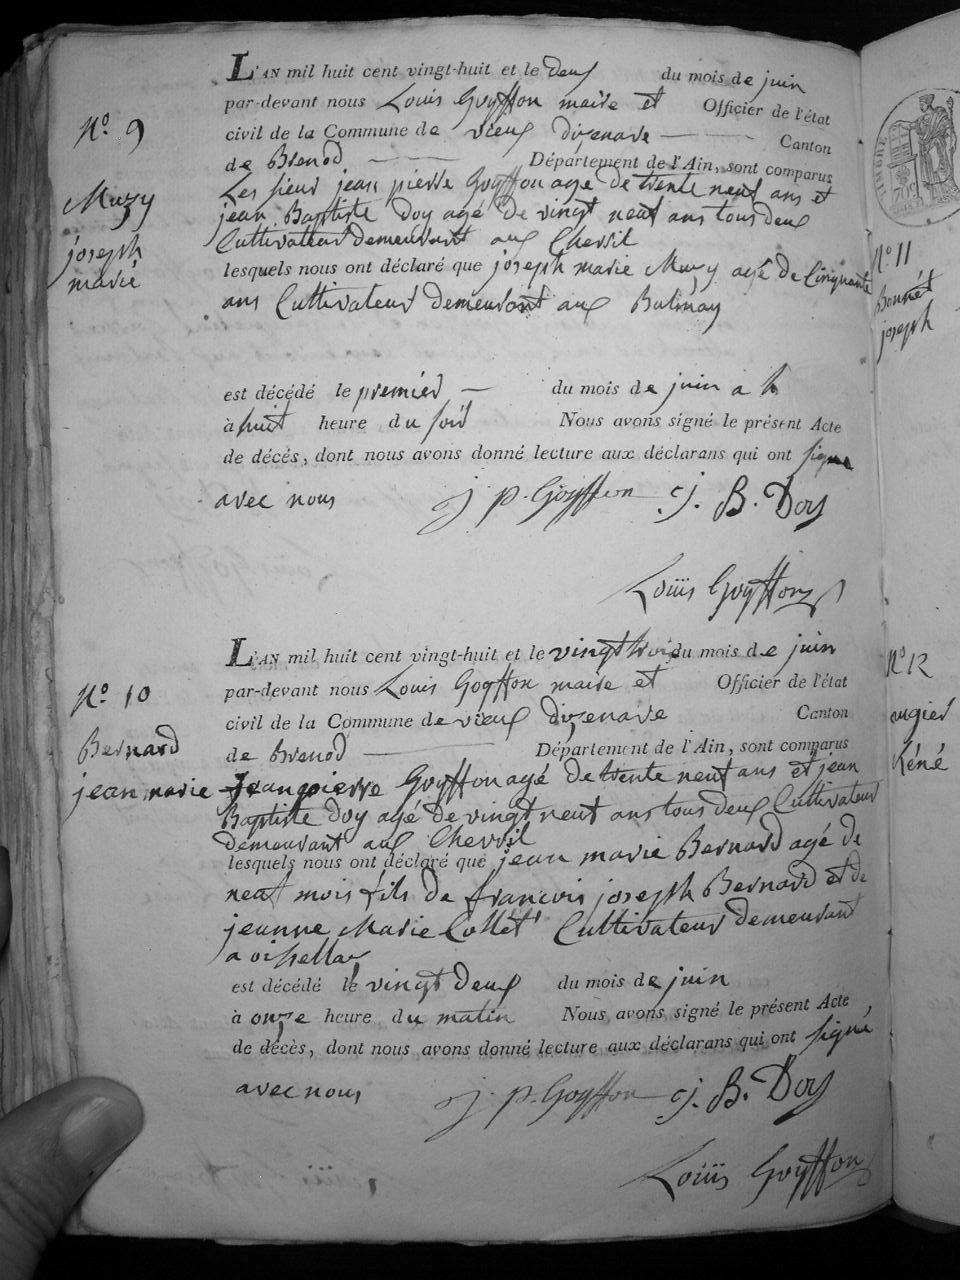 N.o 9
Muzy
joseph
marie
L'AN mil huit cent vingt-huit et le deux du mois de juin
par-devant nous Louis Goyffon maire et Officier de l'état
civil de la Commune de vieux dizenave Canton
de Brenod Département de l'Ain, sont comparus
Les sieur jean pierre Goyffon agé de trente neuf ans et
jean Baptiste Doy agé de vingt neuf ans tous deux
Cultivateur demeurant aux Chevril
lesquels nous ont déclaré que joseph marie Muzy agé de Cinquante
ans Cultivateur demeurant aux Balmay
est décédé le premier du mois de juin a
à huit heure du soir Nous avons signé le présent Acte
de décès, dont nous avons donné lecture aux déclarans qui ont signé
avec nous
j p. Goyffon j. B. Doy
Louis Goyffon
N.o 10
Bernard
jean marie
L'AN mil huit cent vingt-huit et le vingt trois du mois de juin
par-devant nous Louis Goyffon maire et Officier de l'état
civil de la Commune de vieux dizenave Canton
de Brenod Département de l'Ain, sont comparus
jean pierre Goyffon agé de trente neuf ans et jean
Baptiste doy agé de vingt neuf ans tous deux Cultivateur
demeurant aux Chevril
lesquels nous ont déclaré que jean marie Bernard agé de
neuf mois fils de francois joseph Bernard et de
jeanne Marie Collet Cultivateur demeurant
a oisellaz
est décédé le vingt deux du mois de juin
à onze heure du matin Nous avons signé le présent Acte
de décès, dont nous avons donné lecture aux déclarans qui ont signé
avec nous
j. p. Goyffon j. B. Doy
Louis Goyffon
TIMBRE
N.o 11
Bonnét
joseph
N.o 12
augier
Réné